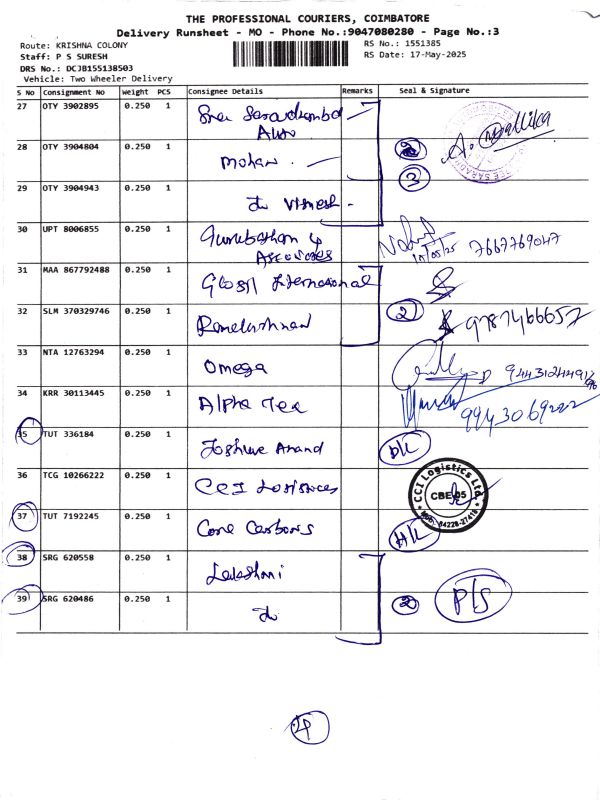 THE PROFESSIONAL COURIERS, COIMBATORE
Delivery Runsheet - MO - Phone No.:9047080280 - Page No.:3
Route: KRISHNA COLONY
RS No.: 1551385
Staff: P S SURESH
RS Date: 17-May-2025
DRS No.: DCJB155138503
Vehicle: Two Wheeler Delivery
S No Consignment No Weight PCS Consignee Details Remarks Seal & Signature
27 OTY 3902895 0.250 1
28 OTY 3904804 0.250 1 Mohan 2
A. Mallika
3
29 OTY 3904943 0.250 1 Do Vignesh
30 UPT 8006855 0.250 1 Associates 7667769047
31 MAA 867792488 0.250 1 International
32 SLM 370329746 0.250 1 Ramakrishnan 2 9787466657
33 NTA 12763294 0.250 1 Omega
34 KRR 30113445 0.250 1 Alpha Tex 9943069222
35 TUT 336184 0.250 1 Anand
36 TCG 10266222 0.250 1 CCI Logistics
CCI Logistics Ltd. CBE-05
37 TUT 7192245 0.250 1 Core Carbons HK
38 SRG 620558 0.250 1 Lakshmi
39 SRG 620486 0.250 1 Do 2 P/S